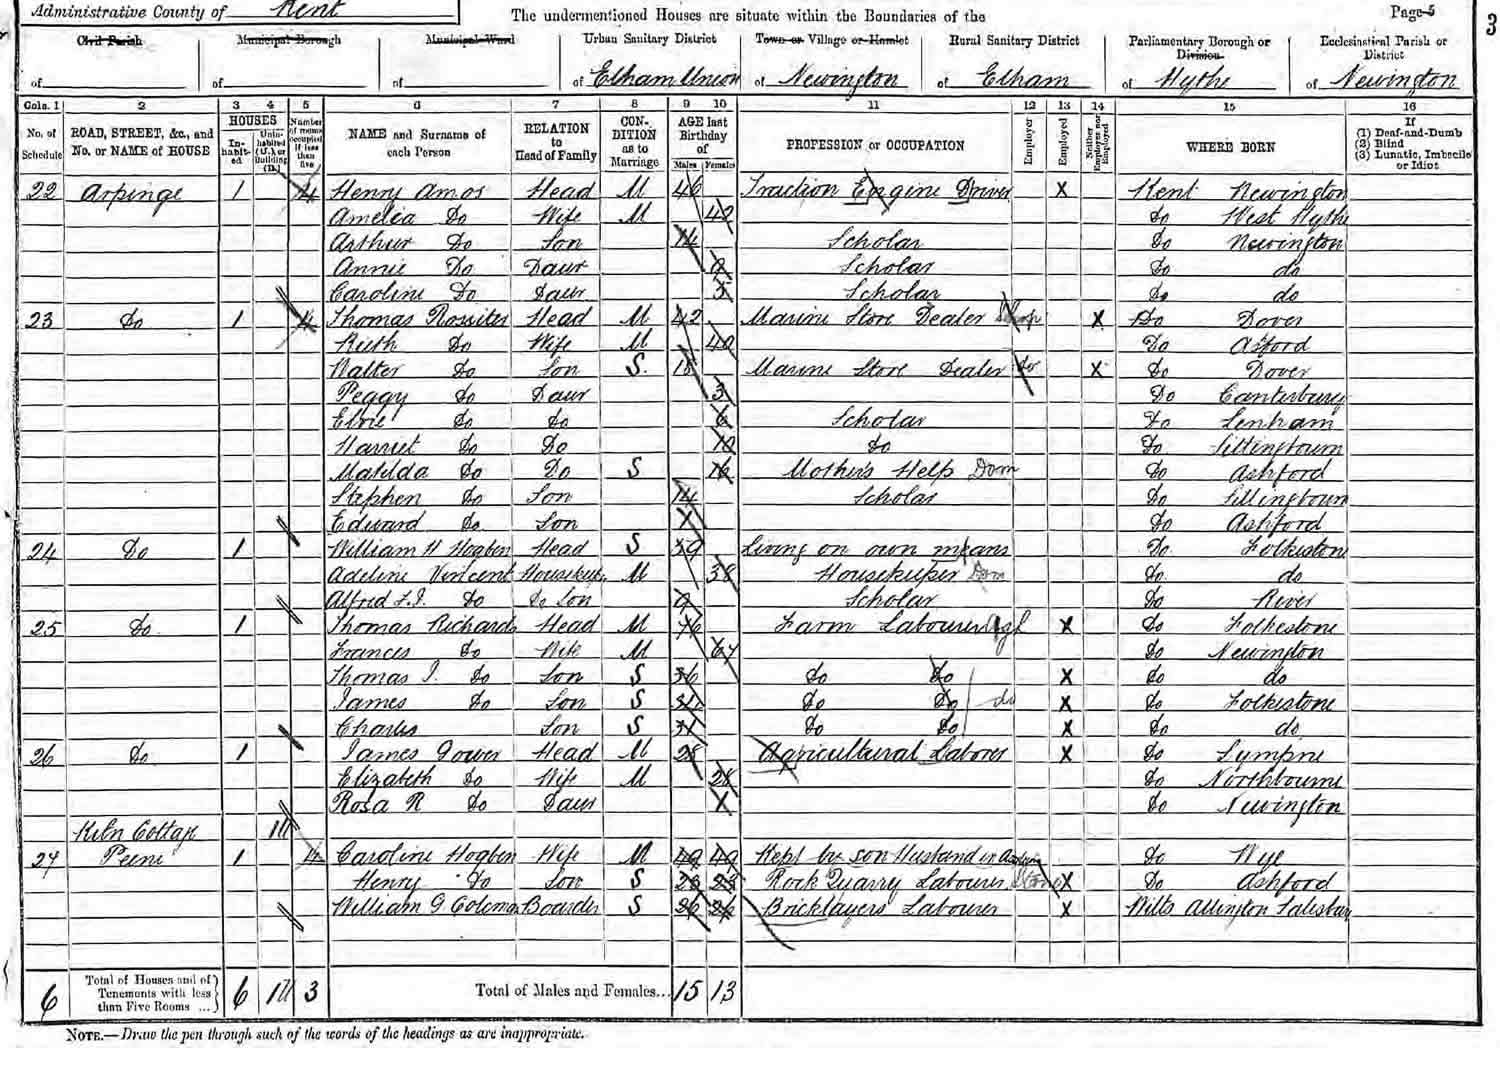 Administrative County of Kent
The undermentioned Houses are situate within the Boundaries of the
Page 5
3
Civil Parish Municipal Borough Municipal Ward Urban Sanitary District Town or Village or Hamlet Rural Sanitary District Parliamentary Borough or Division Ecclesiastical Parish or District
of of of of Elham Union of Newington of Elham of Hythe of Newington
Cols. 1 2 3 4 5 6 7 8 9 10 11 12 13 14 15 16
No. of Schedule ROAD, STREET, &c., and No. or NAME of HOUSE HOUSES Inhabited Uninhabited (U.), or Building (B.) Number of rooms occupied if less than five NAME and Surname of each Person RELATION to Head of Family CONDITION as to Marriage AGE last Birthday of Males Females PROFESSION or OCCUPATION Employer Employed Neither Employer nor Employed WHERE BORN If (1) Deaf-and-Dumb (2) Blind (3) Lunatic, Imbecile or Idiot
22 Arpinge 1 4 Henry Amos Head M 46 Traction Engine Driver X Kent Newington
Amelia Do Wife M 42 Do West Hythe
Arthur Do Son 14 Scholar Do Newington
Annie Do Daur 9 Scholar Do do
Caroline Do Daur 5 Scholar Do do
23 Do 1 4 Thomas Rossiter Head M 42 Marine Store Dealer X Do Dover
Ruth Do Wife M 40 Do Asford
Walter Do Son S. 18 Marine Store Dealer do X Do Dover
Peggy Do Daur 3 Do Canterbury
Do Do 6 Scholar Do Lenham
Harriet Do Do 10 Do Do Sittingbourn
Matilda Do Do S 16 Mother's Help Dom Do Ashford
Stephen Do Son 14 Scholar Do Sittingbourn
Edward Do Son Do Ashford
24 Do 1 William H Hogben Head S 59 Living on own means Do Folkestone
Adeline Vincent Housekeepr M 38 Housekeeper Dom Do do
Alfred Do Do Son 9 Scholar Do River
25 Do 1 Thomas Richards Head M 76 Farm Labourer Agl X Do Folkestone
Frances Do Wife M 67 Do Newington
Thomas J. Do Son S 36 Do Do X Do do
James Do Son S Do Do do X Do Folkestone
Charles Son S 31 Do Do X Do do
26 Do 1 James Gower Head M 28 Agricultural Laborer X Do Lympne
Elizabeth Do Wife M 28 Do Northbourne
Rosa R Do Daur Do Newington
Kiln Cottage
27 Peene 1 4 Caroline Hogben Wife M 49 49 Kept by son Husband in Asylum Do Wye
Henry Do Son S 23 Rock Quarry Labourer Stone X Do Ashford
William G Coleman Boarder S 26 26 Bricklayers Labourer X Wilts Allington Salisbury
6 Total of Houses and of Tenements with less than Five Rooms ... 6 3 Total of Males and Females... 15 13
NOTE.—Draw the pen through such of the words of the headings as are inappropriate.